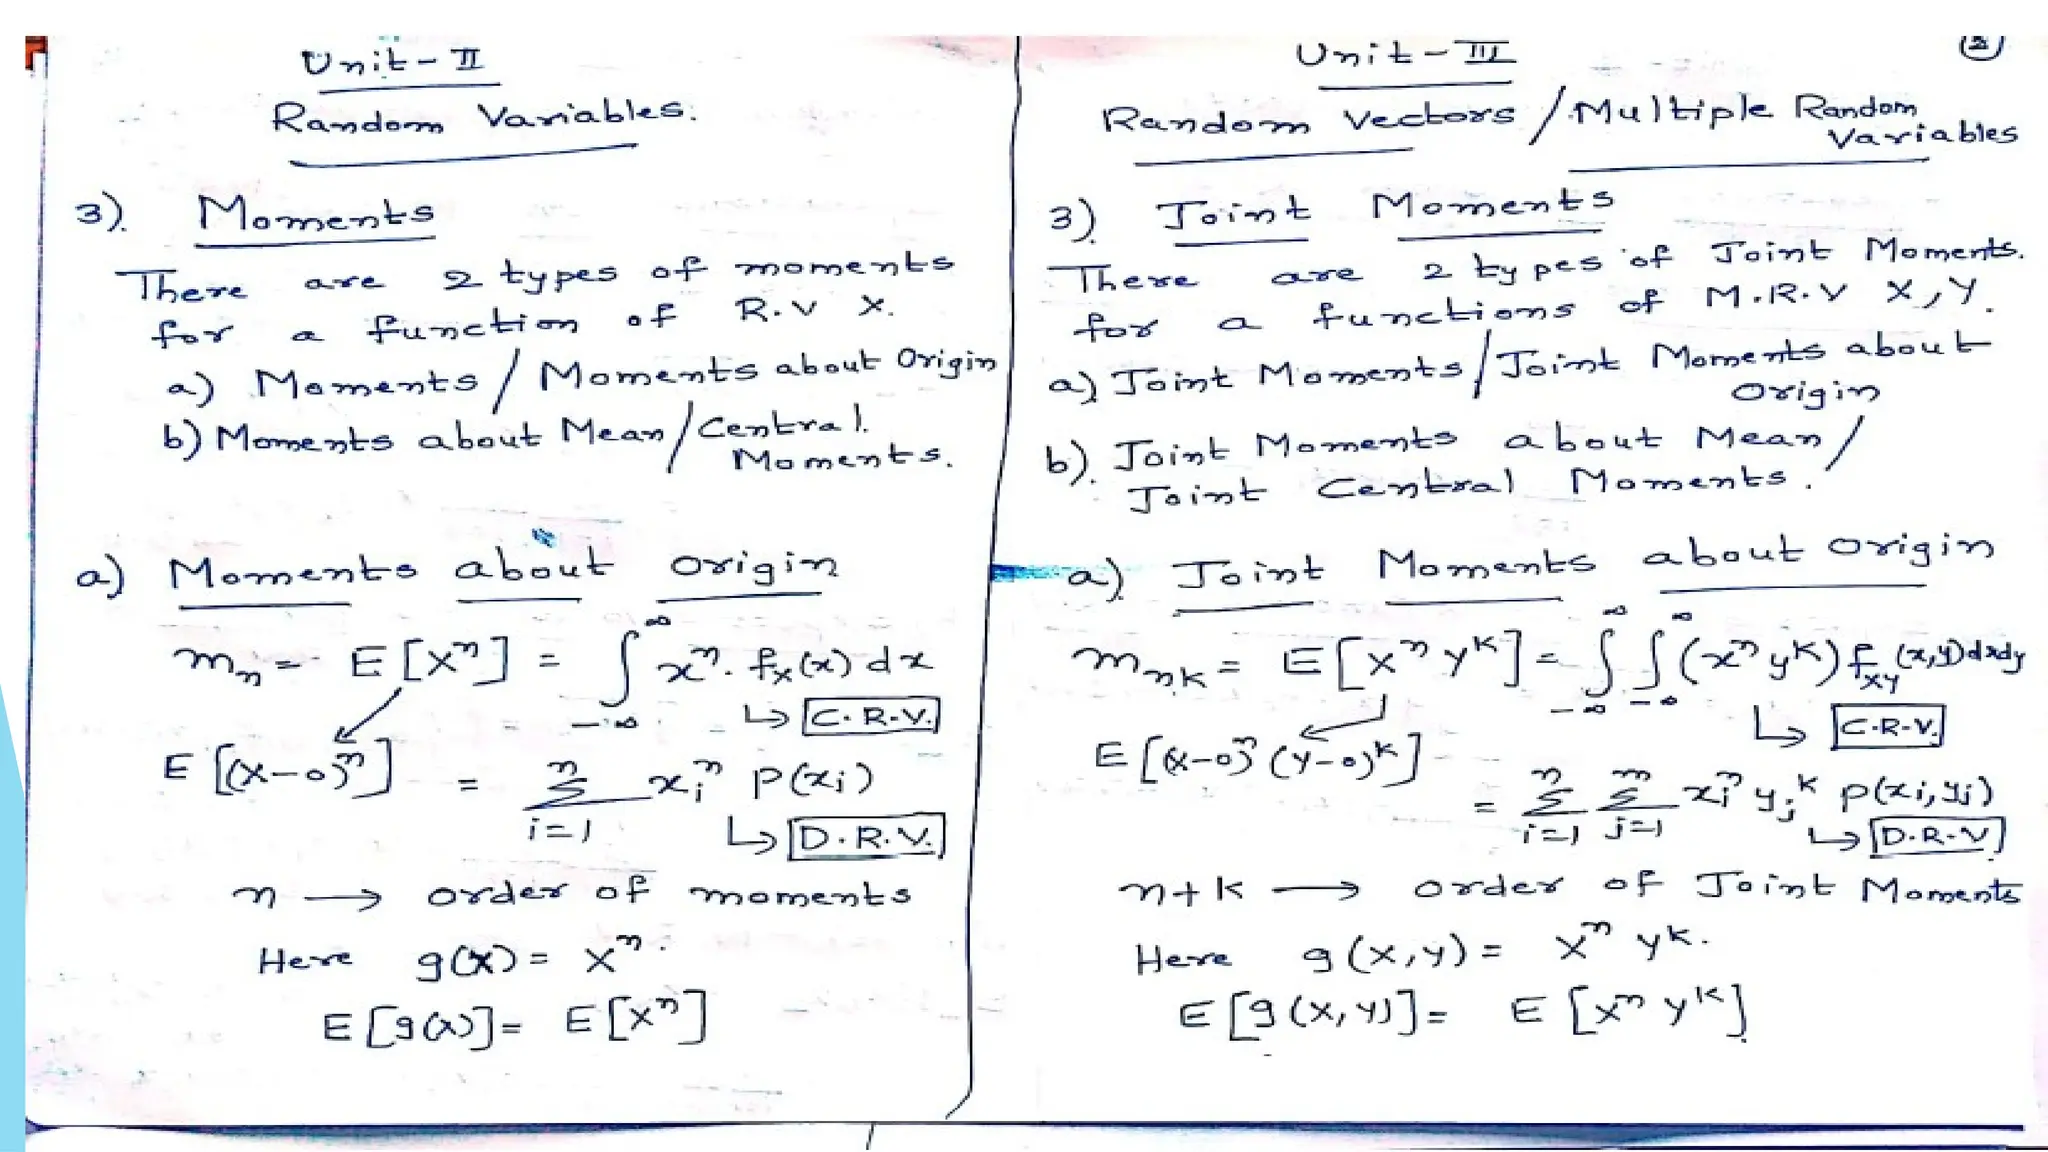 Unit - II
Random Variables.
3). Moments
There are 2 types of moments
for a function of R.V X.
a) Moments / Moments about Origin
b) Moments about Mean / Central
Moments.
a) Moments about origin
mₙ = E[Xⁿ] = ∫ xⁿ. fₓ(x) dx
∞
-∞
↳ C.R.V.
E[(X-0)ⁿ] = Σ xᵢⁿ P(xᵢ)
n
i=1
↳ D.R.V.
n → order of moments
Here g(X) = Xⁿ.
E[g(X)] = E[Xⁿ]
(2)
Unit - III
Random Vectors / Multiple Random
Variables
3). Joint Moments
There are 2 types of Joint Moments.
for a functions of M.R.V X, Y.
a) Joint Moments / Joint Moments about
Origin
b). Joint Moments about Mean /
Joint Central Moments.
a). Joint Moments about origin
∞ ∞
mₙₖ = E[Xⁿ Yᵏ] = ∫ ∫ (xⁿ yᵏ) f_XY (x,y) dx dy
-∞ -∞
↳ C.R.V.
E[(X-0)ⁿ (Y-0)ᵏ]
n m
= Σ Σ xᵢⁿ yⱼᵏ P(xᵢ, yⱼ)
i=1 j=1
↳ D.R.V
n+k → order of Joint Moments
Here g(X,Y) = Xⁿ Yᵏ.
E[g(X,Y)] = E[Xⁿ Yᵏ]